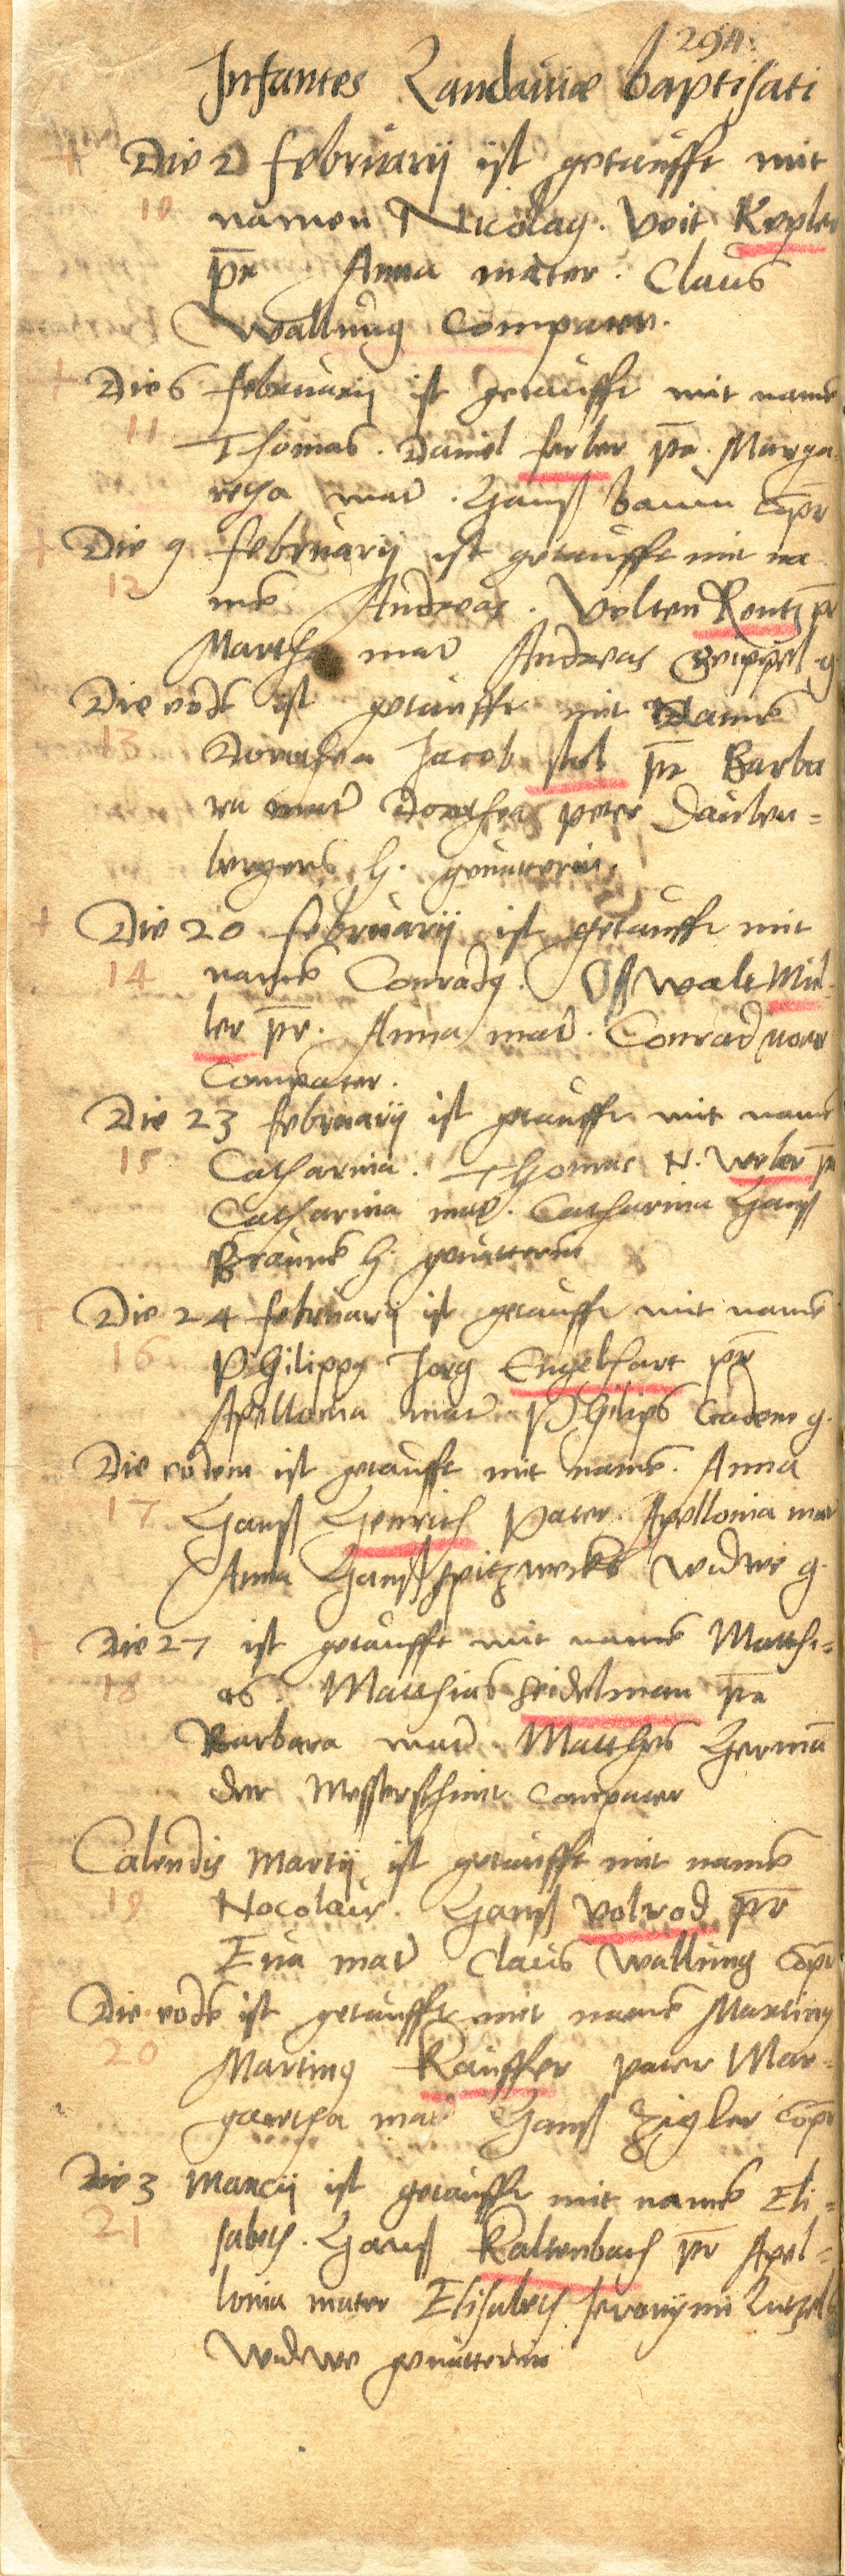 294
Infantes Landauiæ baptisati
Die 2 februarij ist getaufft mit
10 namen Nicolaꝰ. Veit Kepler
pr̄ Anna mater. Claus
Wallung Compater.
Die 6 februarij ist getaufft mit namē
11 Thomas. Daniel ferber pr̄. Marga
retha mat̄. Hanß baum cōpr
Die 9 februarij ist getaufft mit na
12 mē Andreas. Velten Rentz pr̄
Martha mat̄ Andreas g
Die eodē ist getaufft mit Namē
13 Dorothea Jacob stol pr̄ Barba
ra mat̄ Dorothea peter Dauben=
bergers h. geuatterin.
Die 20 februarij ist getaufft mit
14 namē Conradꝰ. Oßwalt Mil=
ler pr̄. Anna mat̄. Conrad
Compater.
Die 23 februarij ist getaufft mit namē
15 Catharina. Thomas N. weber pr̄
Catharina mat̄. Catharina Hanß
Braunē h. geuatterin
Die 24 februarij ist getaufft mit namē
16 Philippꝰ Jorg Engelhart pr̄
Apollonia mat̄ Philips g.
Die eodem ist getaufft mit namē. Anna
17 Hanß Henrich Pater. Apollonia mat̄
Anna Hanß spitzwecks widwe g.
Die 27 ist getaufft mit namē Matthi=
18 as. Matthias Heidelman pr̄
Barbara mat̄. Matthes Hermā
der Messerschmit Compater
Calendis Martij ist getaufft mit namē
19 Nocolaus. Hanß Volrod pr̄
Eua mat̄ Claus Wallung Cōpr
Die eodē ist getaufft mit namē Martinꝰ
20 Martinꝰ Kauffer pater Mar=
garetha mat̄ Hanß Zigler cōpr
Die 3 Marcij ist getaufft mit namē Eli=
21 sabeth. Hanß Kaltenbach pr̄ Apol=
lonia mater Elisabeth Jeronymi
Widwe geuatterin